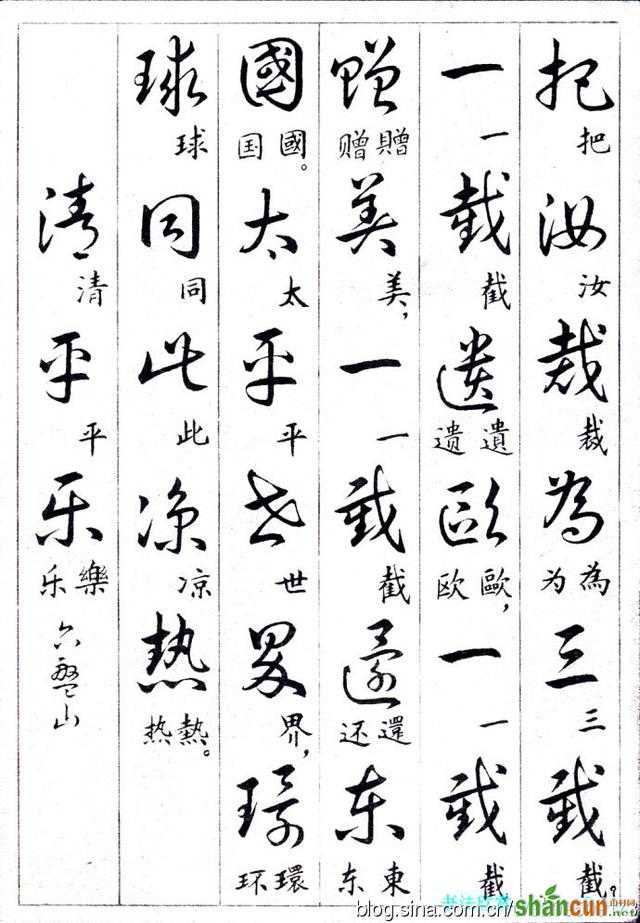 把汝裁為三截
把 汝 裁 為为 三 截？
一截遺歐一截
一 截 遺遗 歐，欧 一 截
贈美一截還东
贈赠 美， 一 截 還还 東东
國太平世界環
國。国 太 平 世 界， 環环
球同此凉熱
球 同 此 凉 熱。热
清平乐
清 平 樂乐
六盤山
shancun
blog.sina.com.cn/